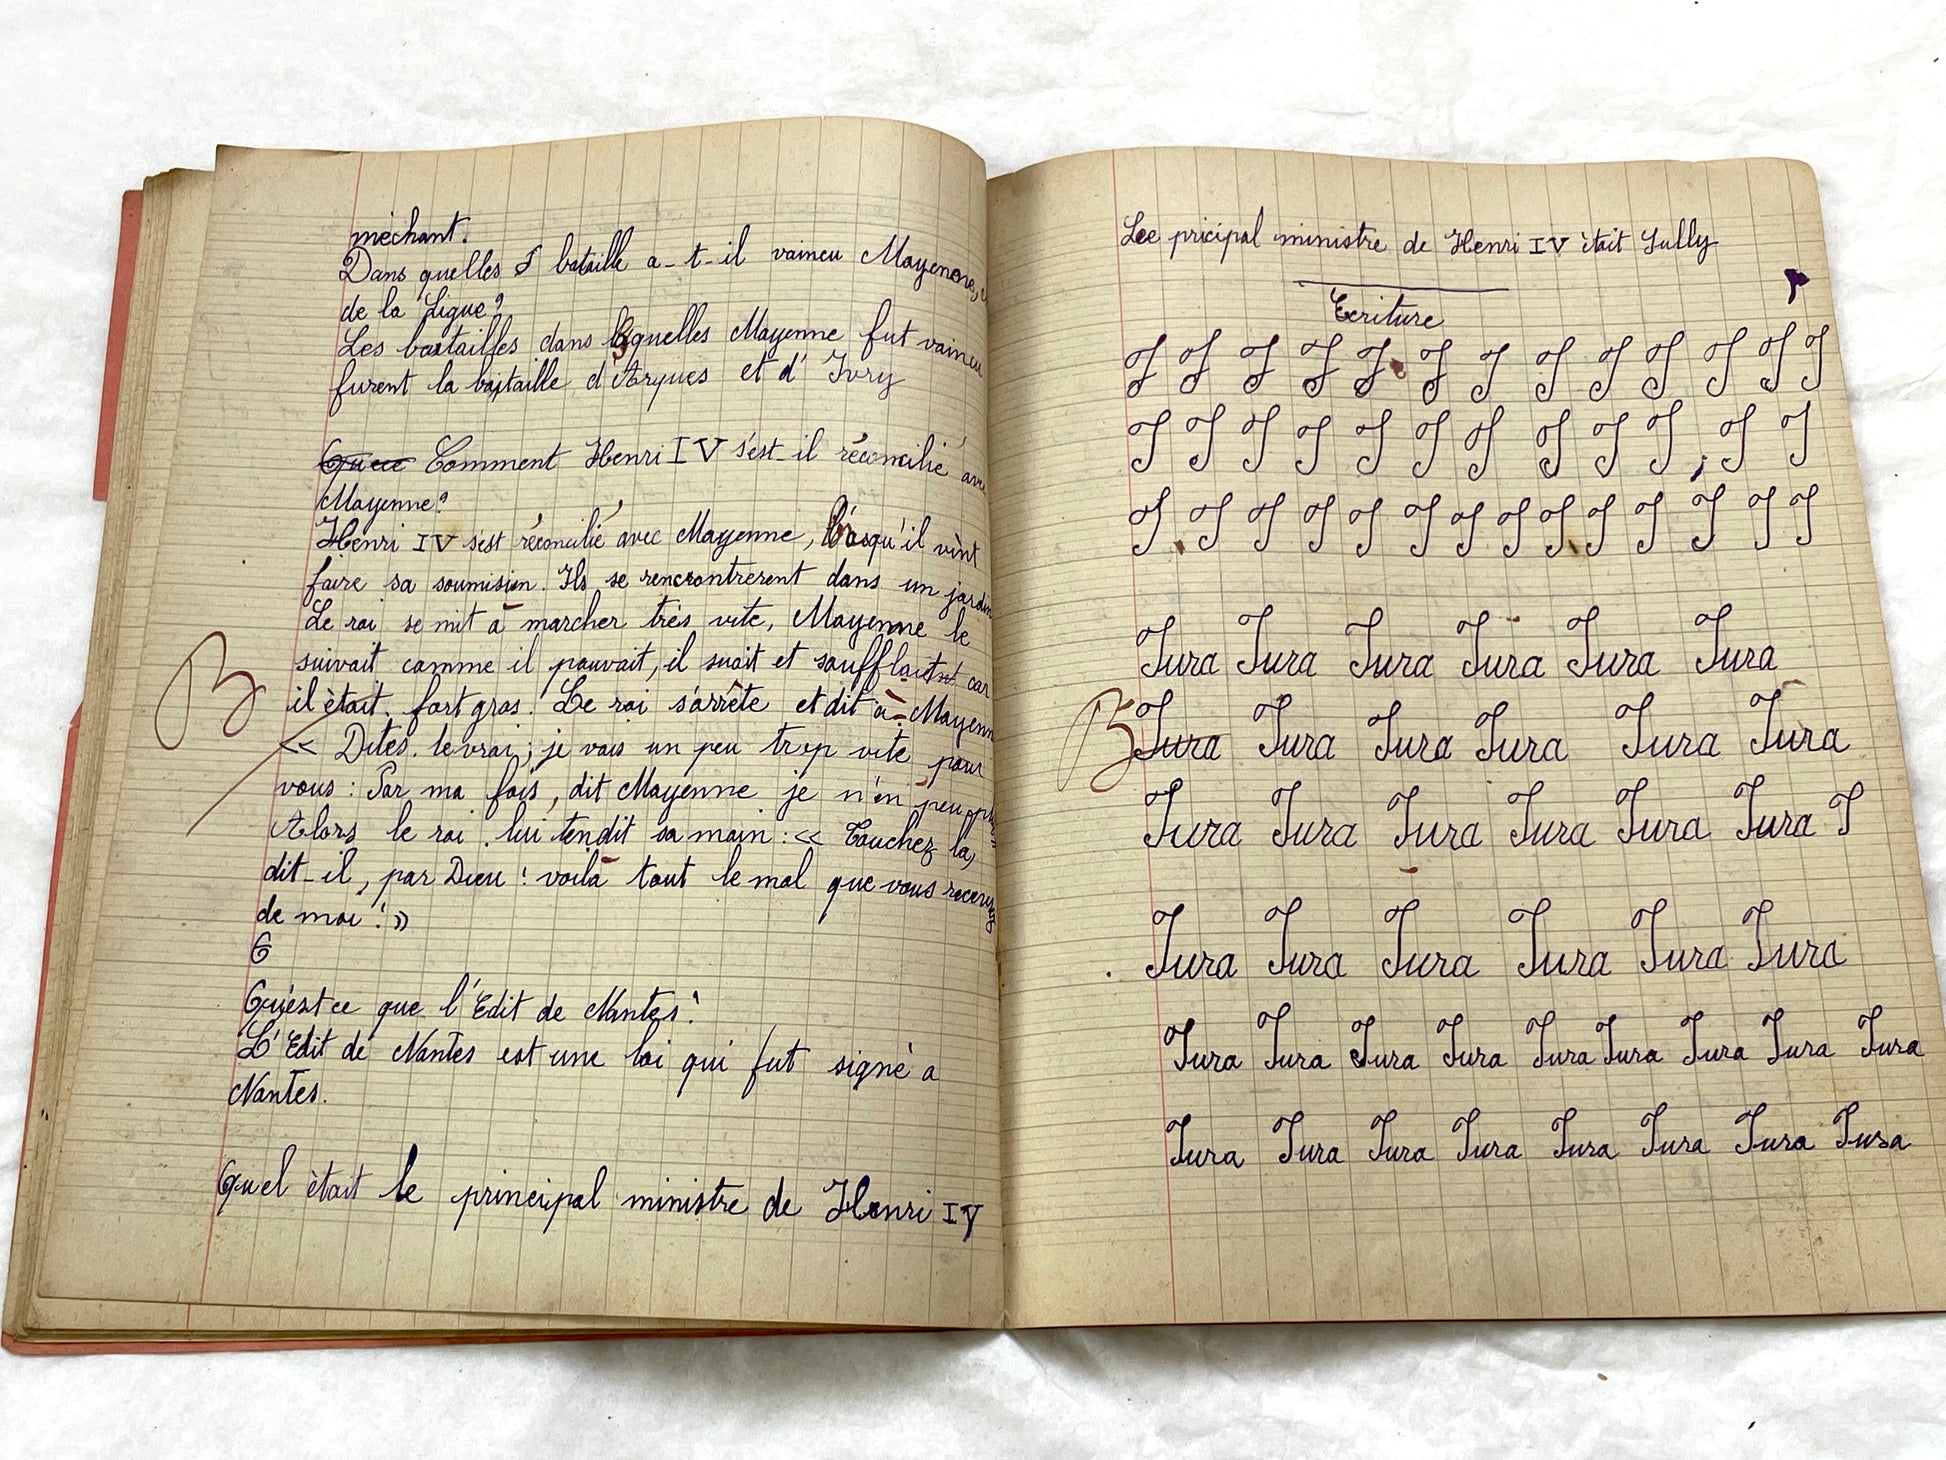 mèchant.
Dans quelles bataille a-t-il vaincu Mayenne,
de la Ligue?
Les bastailles dans lesquelles Mayenne fut vaincu
furent la bataille d'Arques et d'Ivry
Comment Henri IV s'est-il réconcilié avec
Mayenne?
Henri IV s'est réconcilié avec Mayenne, lorsqu'il vint
faire sa soumision. Ils se rencontrerent dans un jardin
Le roi se mit à marcher très vite, Mayenne le
suivait comme il pouvait, il suait et soufflait car
il ètait fort gros. Le roi s'arrête et dit à Mayenne
<< Dites le vrai, je vais un peu trop vite pour
vous: Par ma fois, dit Mayenne je n'en peu plus
Alors le roi lui tendit sa main: << Touchez la,
dit-il, par Dieu! voilà tout le mal que vous recevrez
de moi! »
B
Qu'est ce que l'Edit de Nantes?
L'Edit de Nantes est une loi qui fut signè a
Nantes.
Quel ètait le principal ministre de Henri IV
Lee pricipal ministre de Henri IV ètait Sully
Ecriture
J J J J J J J J J J J J J
J J J J J J J J J J J J
J J J J J J J J J J J J J
Jura Jura Jura Jura Jura Jura
B Jura Jura Jura Jura Jura Jura
Jura Jura Jura Jura Jura Jura J
Jura Jura Jura Jura Jura Jura
Jura Jura Jura Jura Jura Jura Jura Jura Jura
Jura Jura Jura Jura Jura Jura Jura Jura